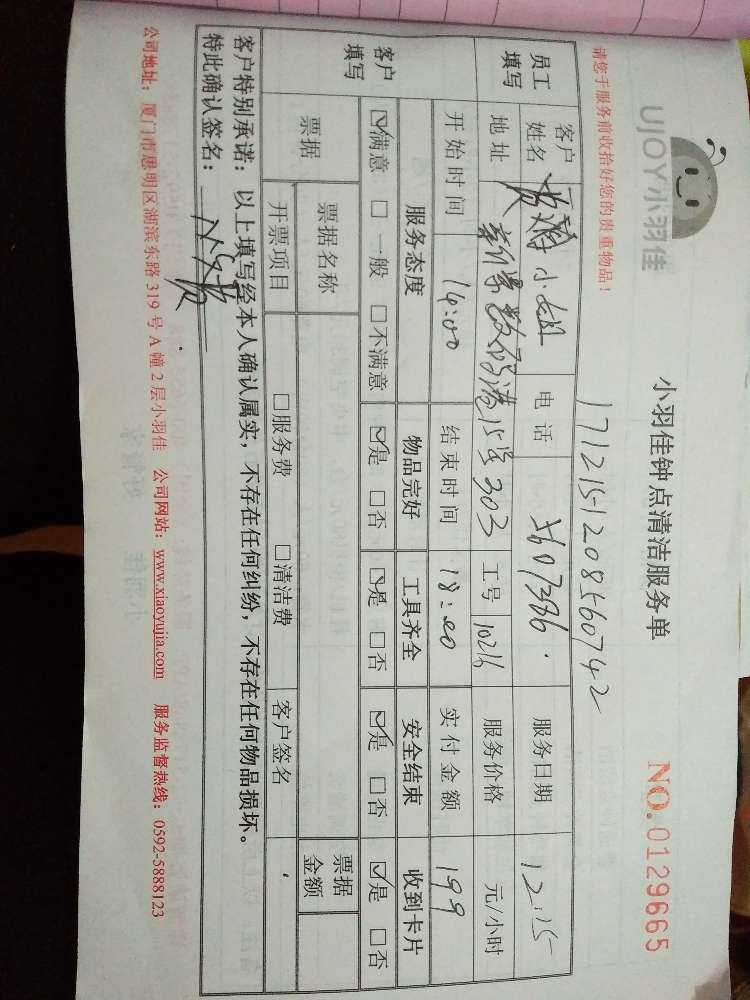 UJOY小羽佳
小羽佳钟点清洁服务单
NO.0129665
请您于服务前收拾好您的贵重物品！
1712151208560742
员工填写
客户姓名 小姐 电话 服务日期 12.15
地址 15号303 工号 10216 服务价格 元/小时
开始时间 14:00 结束时间 18:00 实付金额 199
客户填写
服务态度 物品完好 工具齐全 安全结束 收到卡片
☑满意 □一般 □不满意 ☑是 □否 ☑是 □否 ☑是 □否 ☑是 □否
票据 票据名称 票据金额
开票项目 □服务费 □清洁费 客户签名
客户特别承诺：以上填写经本人确认属实，不存在任何纠纷，不存在任何物品损坏。
特此确认签名：
公司地址：厦门市思明区湖滨东路 319 号 A 幢 2 层小羽佳 公司网站：www.xiaoyujia.com 服务监督热线：0592-5888123